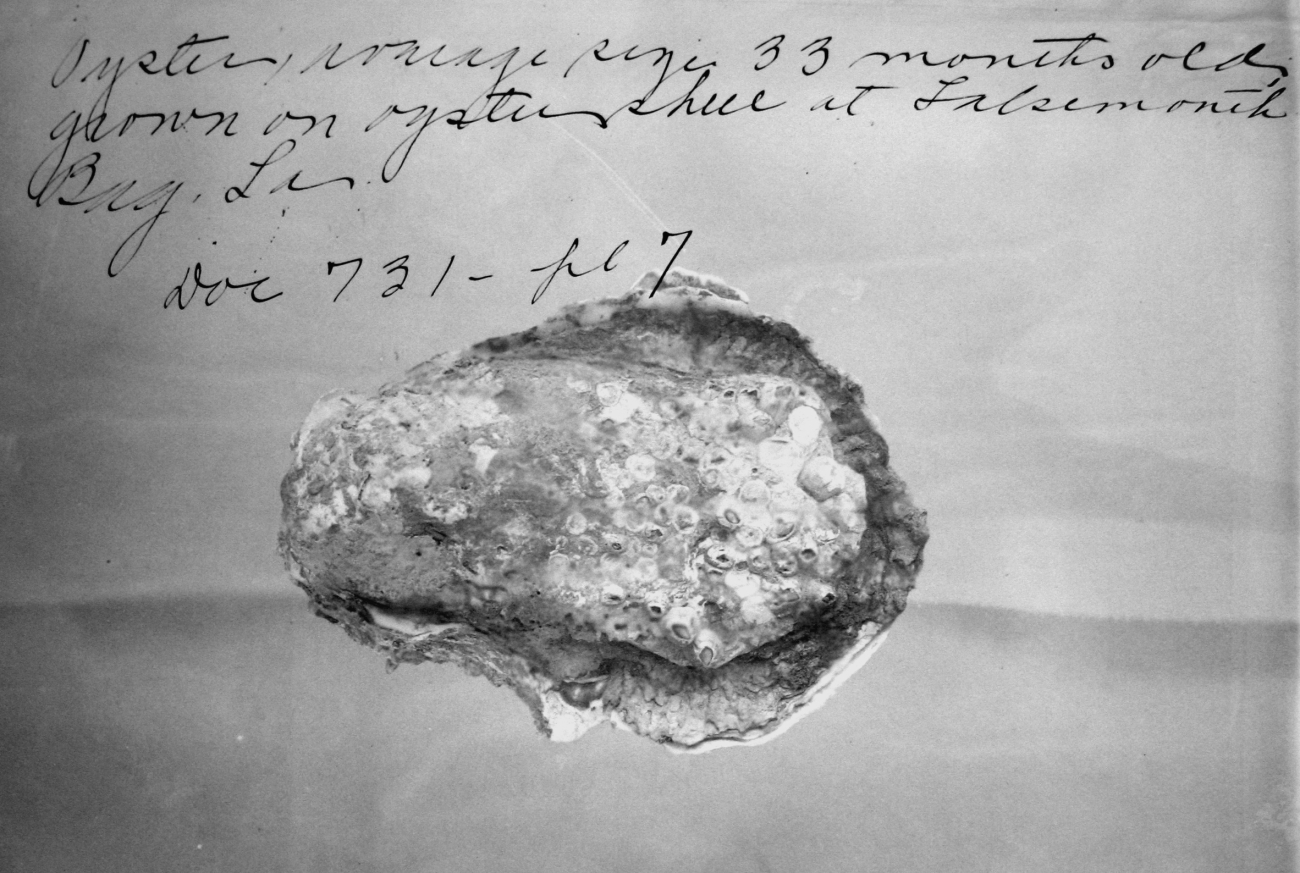 Oyster, average size 33 months old,
grown on oyster shell at Falsemouth
Bay. La.
Doc 731- pl 7